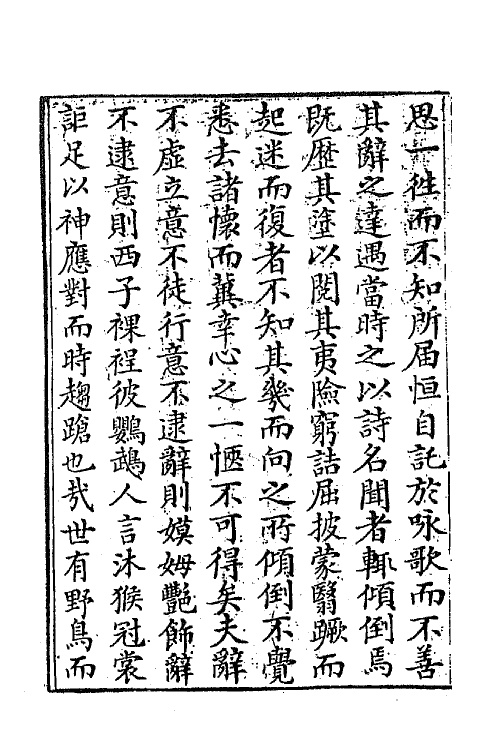 思一徃而不知所届恒自託於咏歌而不善
其辭之達遇當時之以詩名聞者輙傾倒焉
既歴其塗以閱其夷險窮詰屈披蒙翳蹶而
起迷而復者不知其㡬而向之所傾倒不覺
悉去諸懷而兾幸心之一愜不可得矣夫辭
不虚立意不徒行意不逮辭則嫫姆艷飾辭
不逮意則西子裸裎彼鸚鵡人言沐猴冠裳
詎足以神應對而時趨蹌也㢤世有野鳥而